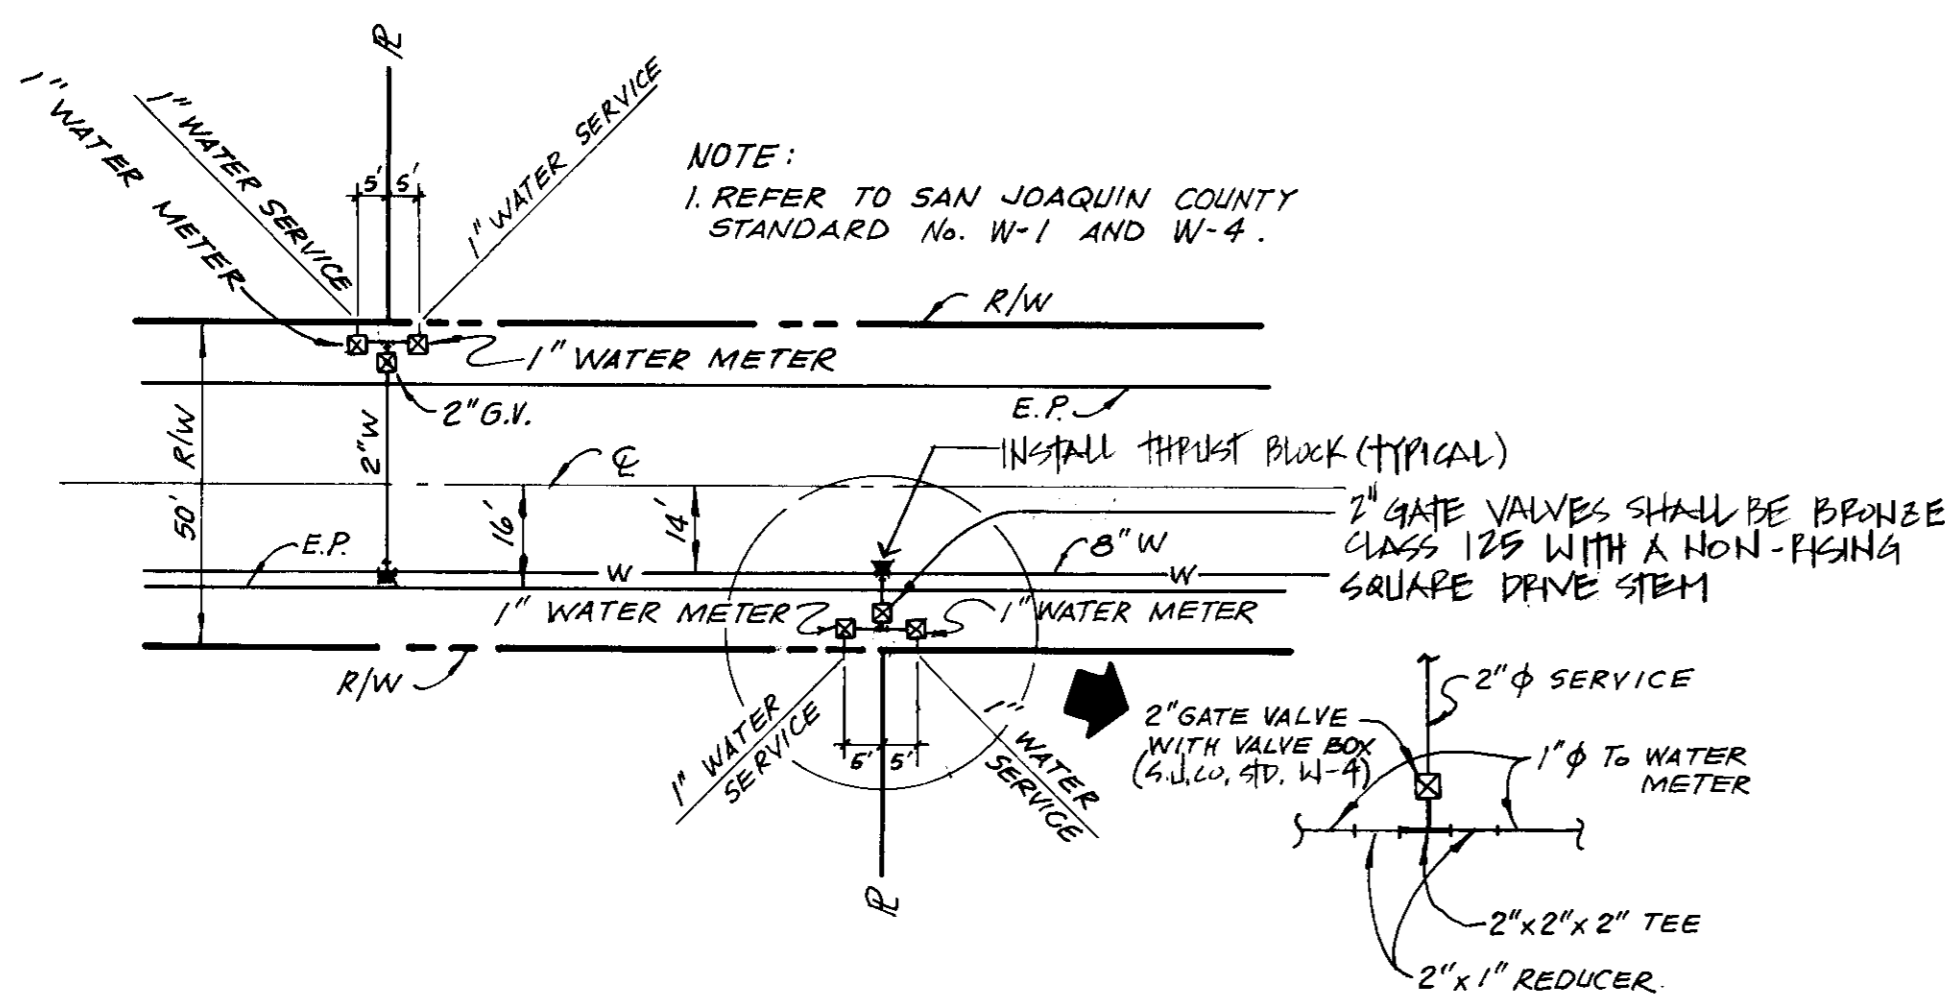 ℄
1" WATER METER
1" WATER SERVICE
1" WATER SERVICE
5' 5'
NOTE:
1. REFER TO SAN JOAQUIN COUNTY
STANDARD No. W-1 AND W-4.
R/W
1" WATER METER
E.P.
2" G.V.
50' R/W
2" W
INSTALL THRUST BLOCK (TYPICAL)
2" GATE VALVES SHALL BE BRONZE
CLASS 125 WITH A NON-RISING
SQUARE DRIVE STEM
16'
14'
E.P.
8" W
W
W
1" WATER METER
1" WATER METER
R/W
PL
PL
1" WATER
SERVICE
5' 5'
1" WATER
SERVICE
2" GATE VALVE
WITH VALVE BOX
(S.J.CO. STD. W-4)
2" ϕ SERVICE
1" ϕ TO WATER
METER
2" x 2" x 2" TEE
2" x 1" REDUCER.